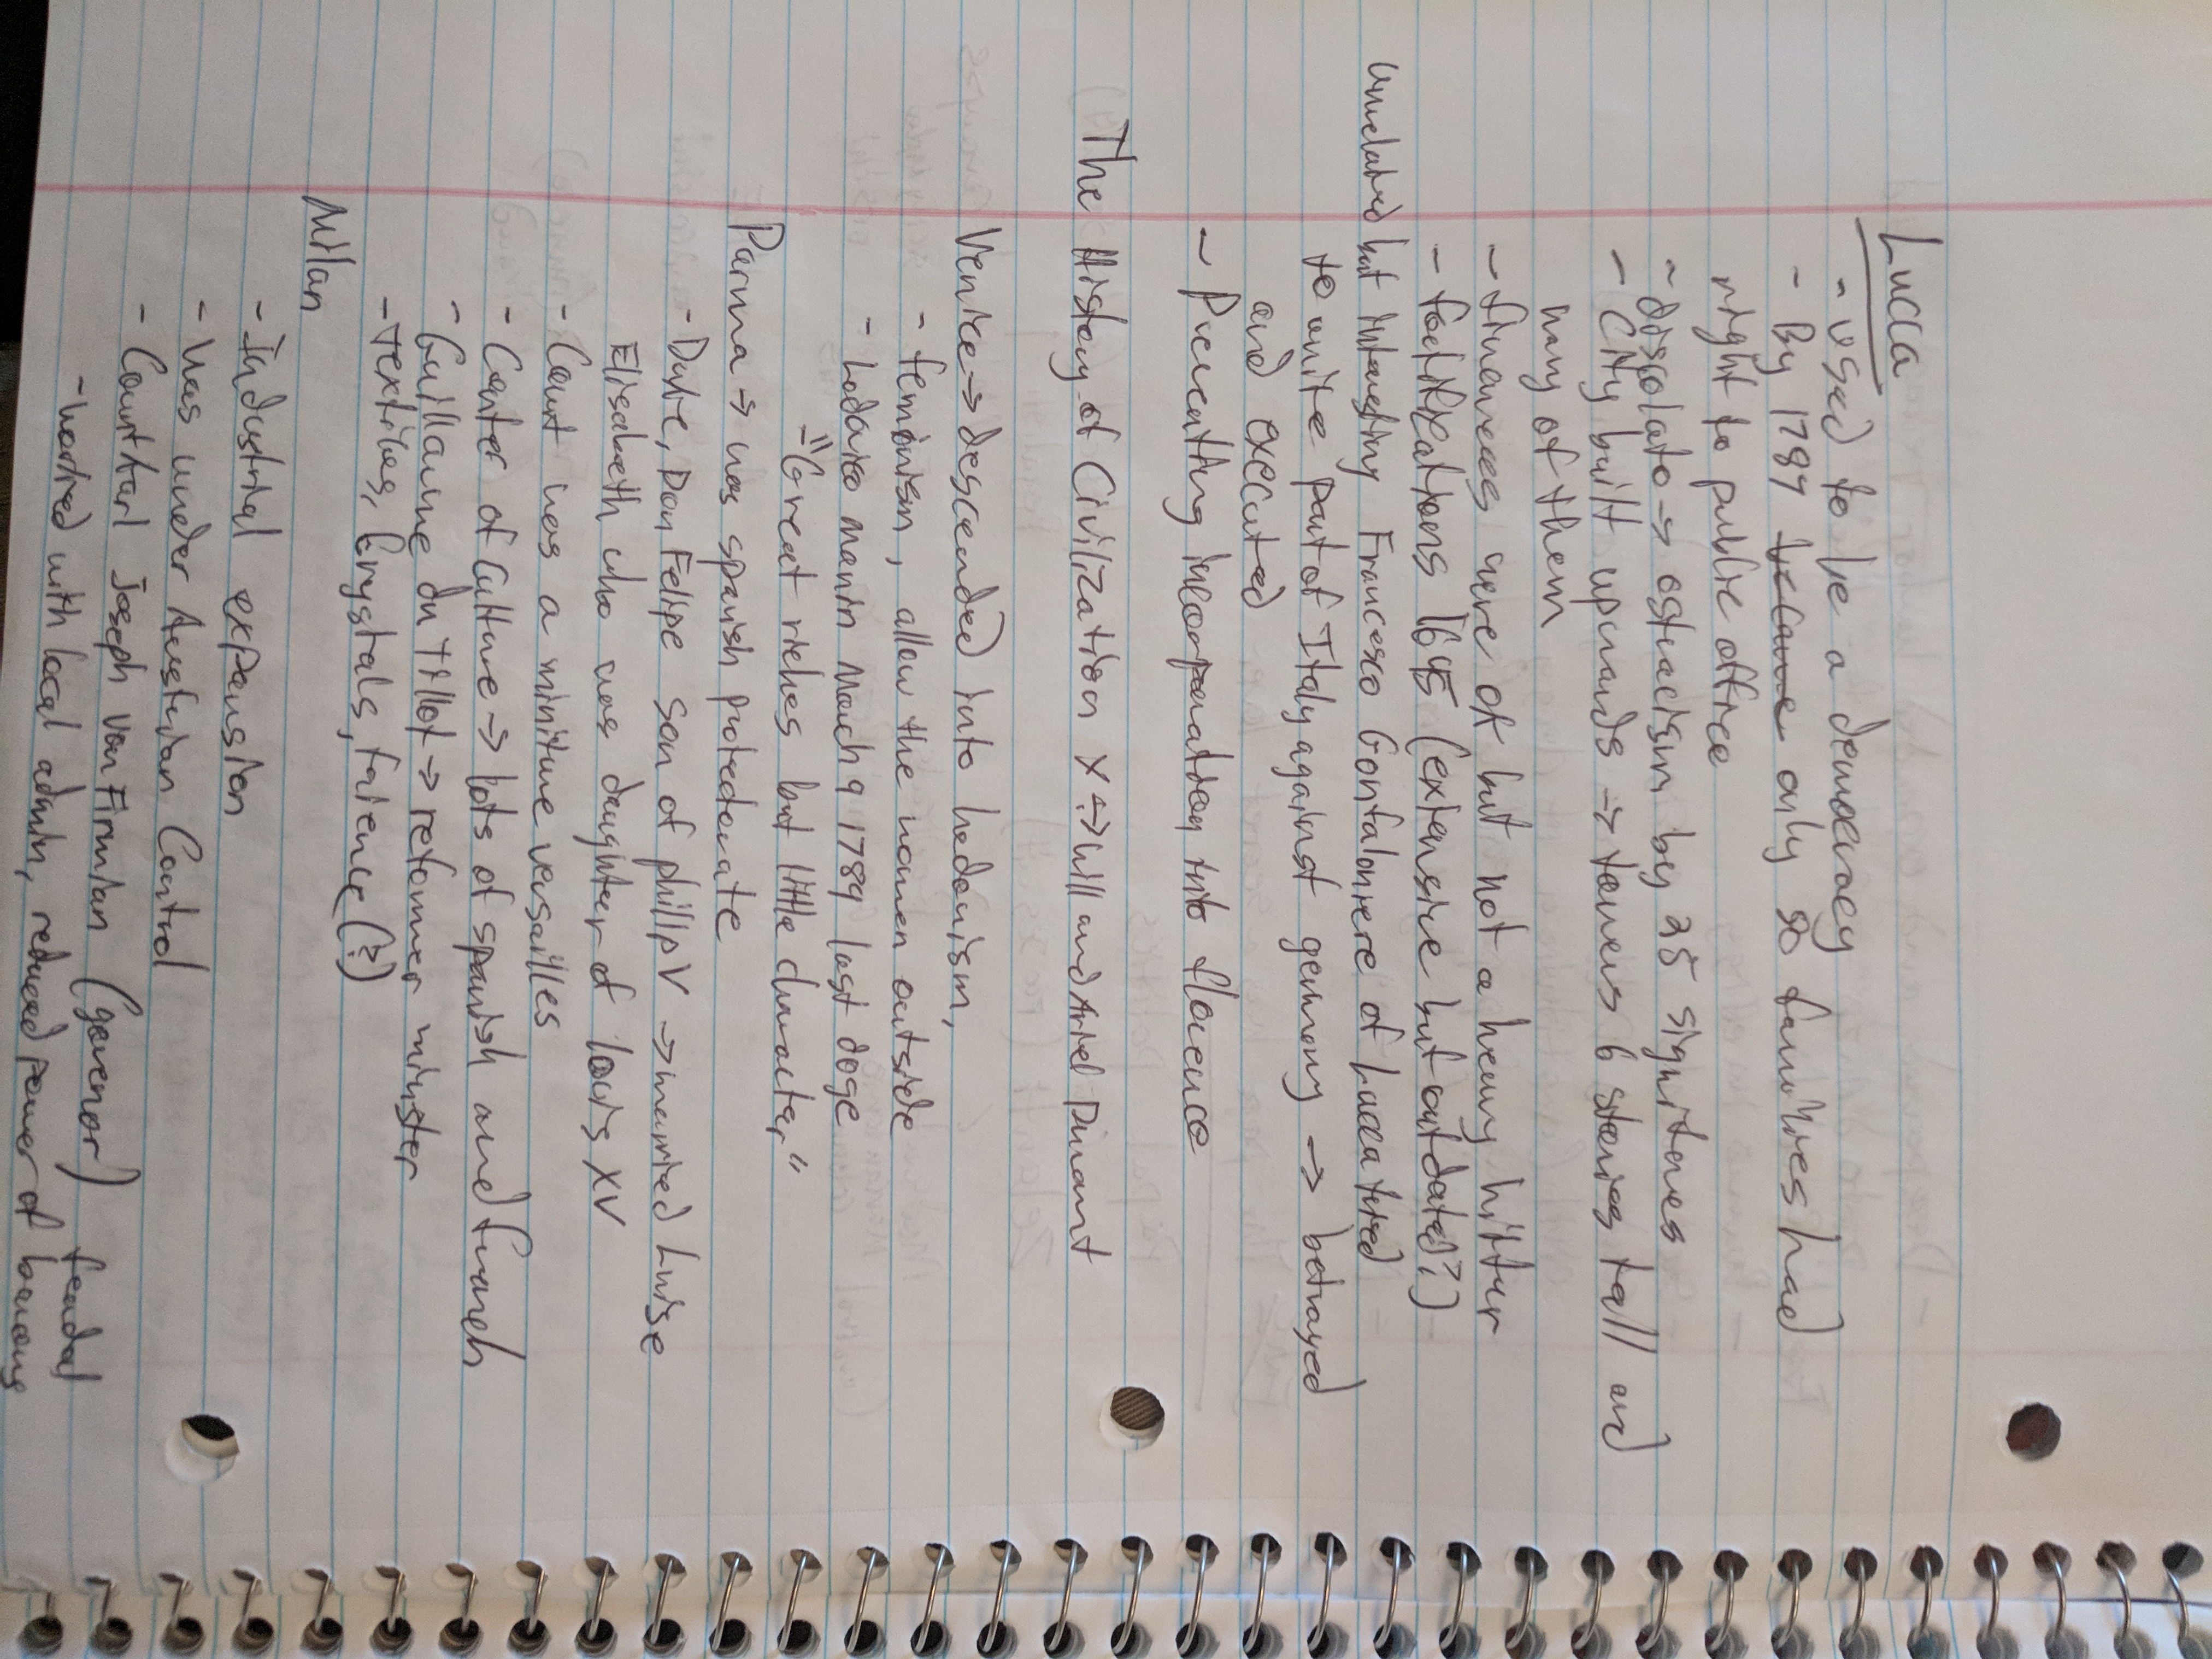 Lucca
- used to be a democracy
- By 1789 became only 90 families had
right to public office
- discolato → ostracism by 25 signitures
- City built upwards → towers 6 stories tall and
many of them
- finances were ok but not a heavy hitter
- fortifications 1645 (extensive but outdated?)
unrelated but interesting Francesco Gonfaloniere of Lucca tried
to unite part of Italy against germany → betrayed
and executed
- Preventing incorporation into florence
The History of Civilization X → Will and Ariel Durant
Venice → descended into hedonism,
- feminism, allow the women outside
- Lodovico manin March 9 1789 last doge
- "Great riches but little character"
Parma → was spanish protectorate
- Duke, Don Felipe son of phillip V → married Luise
Elisabeth who was daughter of louis XV
- Court was a miniture versailles
- Center of Culture → lots of spanish and french
- Guillaume du Tillot → reformer minister
- textiles, crystals, faience (?)
Milan
- Industrial expansion
- Was under Austrian Control
- Count Karl Joseph von Firmian (govenor)
- worked with local admin, reduced power of feudal barons